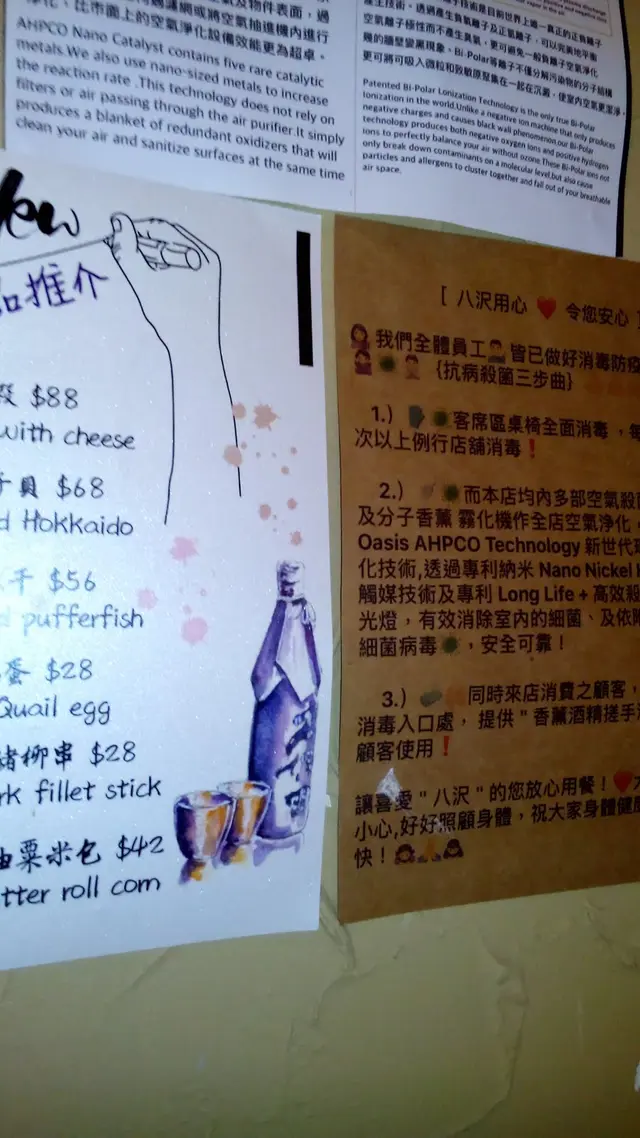 淨化，比市面上的空氣淨化設備效能更為超卓。
AHPCO Nano Catalyst contains five rare catalytic
metals.We also use nano-sized metals to increase
the reaction rate .This technology does not rely on
filters or air passing through the air purifier.It simply
produces a blanket of redundant oxidizers that will
clean your air and sanitize surfaces at the same time
產生技術，透過產生負氧離子及正氫離子，可以完美地平衡
空氣離子極性而不產生臭氧，更可避免一般負離子空氣淨化
機的牆壁變黑現象。Bi-Polar等離子不僅分解污染物的分子結構
更可將可吸入微粒和致敏原聚集在一起在沉澱，使室內空氣更潔淨
Patented Bi-Polar Lonization Technology is the only true Bi-Polar
Ionization in the world.Unlike a negative ion machine that only produces
negative charges and causes black wall phenomenon.our Bi-Polar
technology produces both negative oxygen ions and positive hydrogen
ions to perfectly balance your air without ozone.These Bi-Polar ions not
only break down contaminants on a molecular level,but also cause
particles and allergens to cluster together and fall out of your breathable
air space.
New
品推介
$88
with cheese
貝 $68
Hokkaido
$56
pufferfish
蛋 $28
Quail egg
豬柳串 $28
rk fillet stick
油粟米包 $42
tter roll corn
[ 八沢用心 ❤️ 令您安心 ]
我們全體員工 皆已做好消毒防疫
{抗病殺菌三步曲}
1.) 客席區桌椅全面消毒 ，每
次以上例行店舖消毒❗
2.) 而本店均內多部空氣殺菌
及分子香薰 霧化機作全店空氣淨化
Oasis AHPCO Technology 新世代環
化技術,透過專利納米 Nano Nickel H
觸媒技術及專利 Long Life + 高效殺
光燈，有效消除室內的細菌、及依附
細菌病毒 ，安全可靠！
3.) 同時來店消費之顧客，
消毒入口處， 提供 " 香薰酒精搓手液
顧客使用❗
讓喜愛 " 八沢 " 的您放心用餐！❤️
小心,好好照顧身體，祝大家身體健康
快！